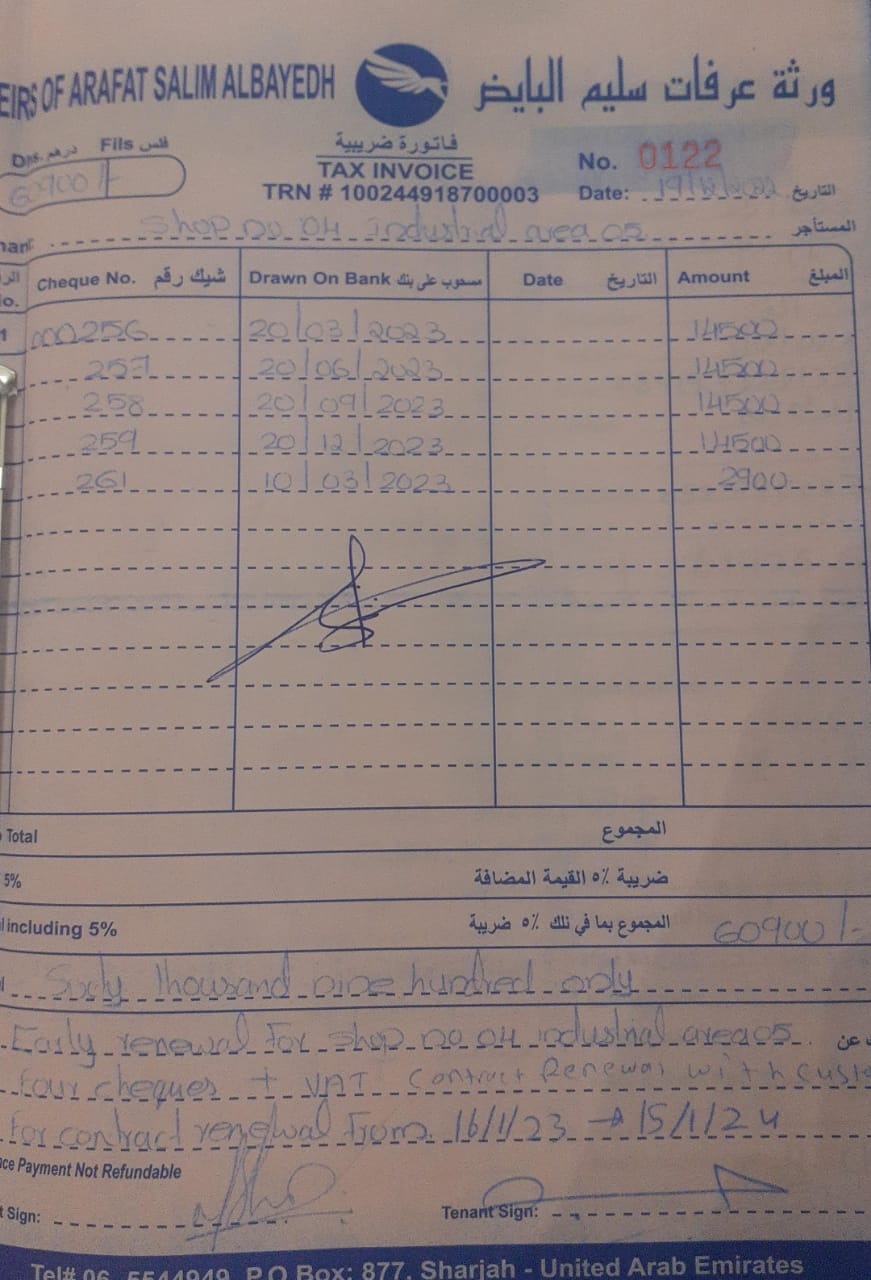 EIRS OF ARAFAT SALIM ALBAYEDH ورثة عرفات سليم البايض
Dhs. درهم Fils فلس
60900/-
فاتورة ضريبية
TAX INVOICE
TRN # 100244918700003
No. 0122
Date: 19/12/2022 التاريخ
nant shop no 04 industrial area 05 المستأجر
الر
No. Cheque No. شيك رقم Drawn On Bank مسحوب على بنك Date التاريخ Amount المبلغ
1 000256 20/03/2023 14500
257 20/06/2023 14500
258 20/09/2023 14500
259 20/12/2023 14500
261 10/03/2023 2900
Total المجموع
5% ضريبة ٥٪ القيمة المضافة
l including 5% المجموع بما في ذلك ٥٪ ضريبة 60900/-
Sixty thousand nine hundred only
Early renewal For shop no 04 industrial area 05 عن
four cheques + VAT contract Renewal with
For contract renewal From 16/1/23 → 15/1/24
ce Payment Not Refundable
t Sign: Tenant Sign:
Tel# 06 5544949 P.O Box: 877, Sharjah - United Arab Emirates